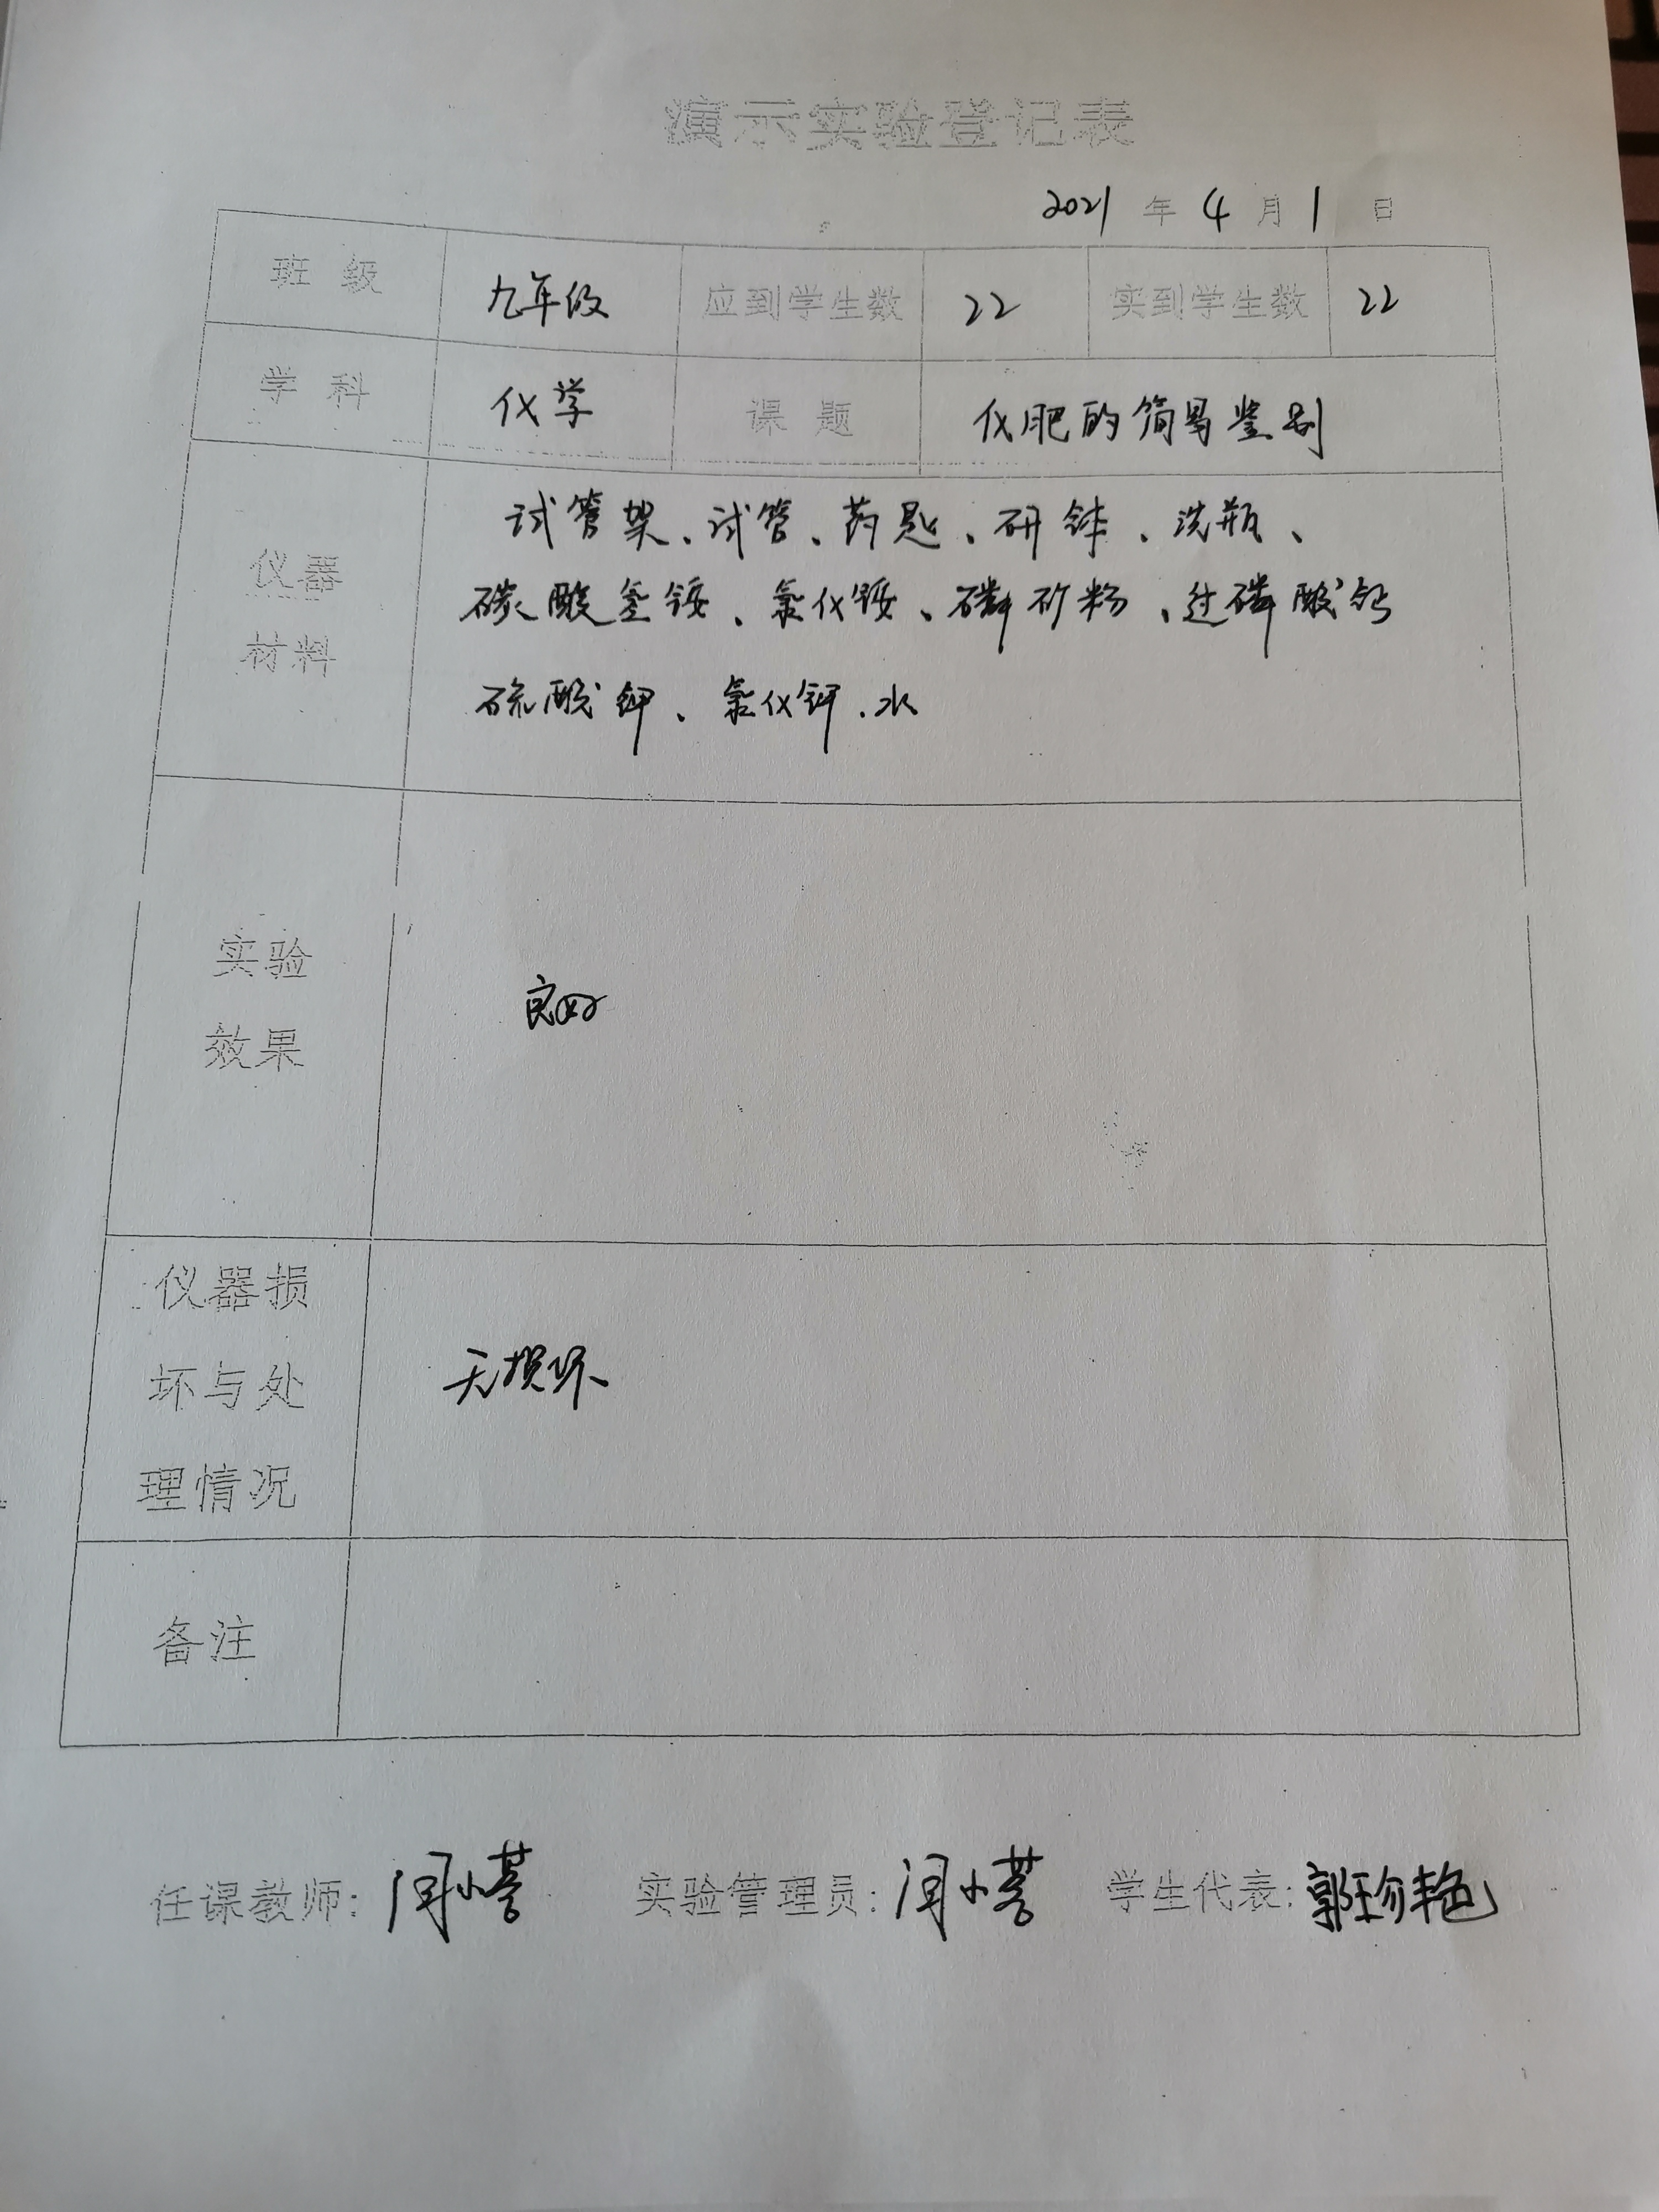 演示实验登记表
2021 年 4 月 1 日
班 级 九年级 应到学生数 22 实到学生数 22
学 科 化学 课 题 化肥的简易鉴别
仪器
材料
试管架、试管、药匙、研钵、洗瓶、
碳酸氢铵、氯化铵、磷矿粉、过磷酸钙
硫酸钾、氯化钾、水
实验
效果
良好
仪器损
坏与处
理情况
无损坏
备注
任课教师: 实验管理员: 学生代表: 郭珍艳